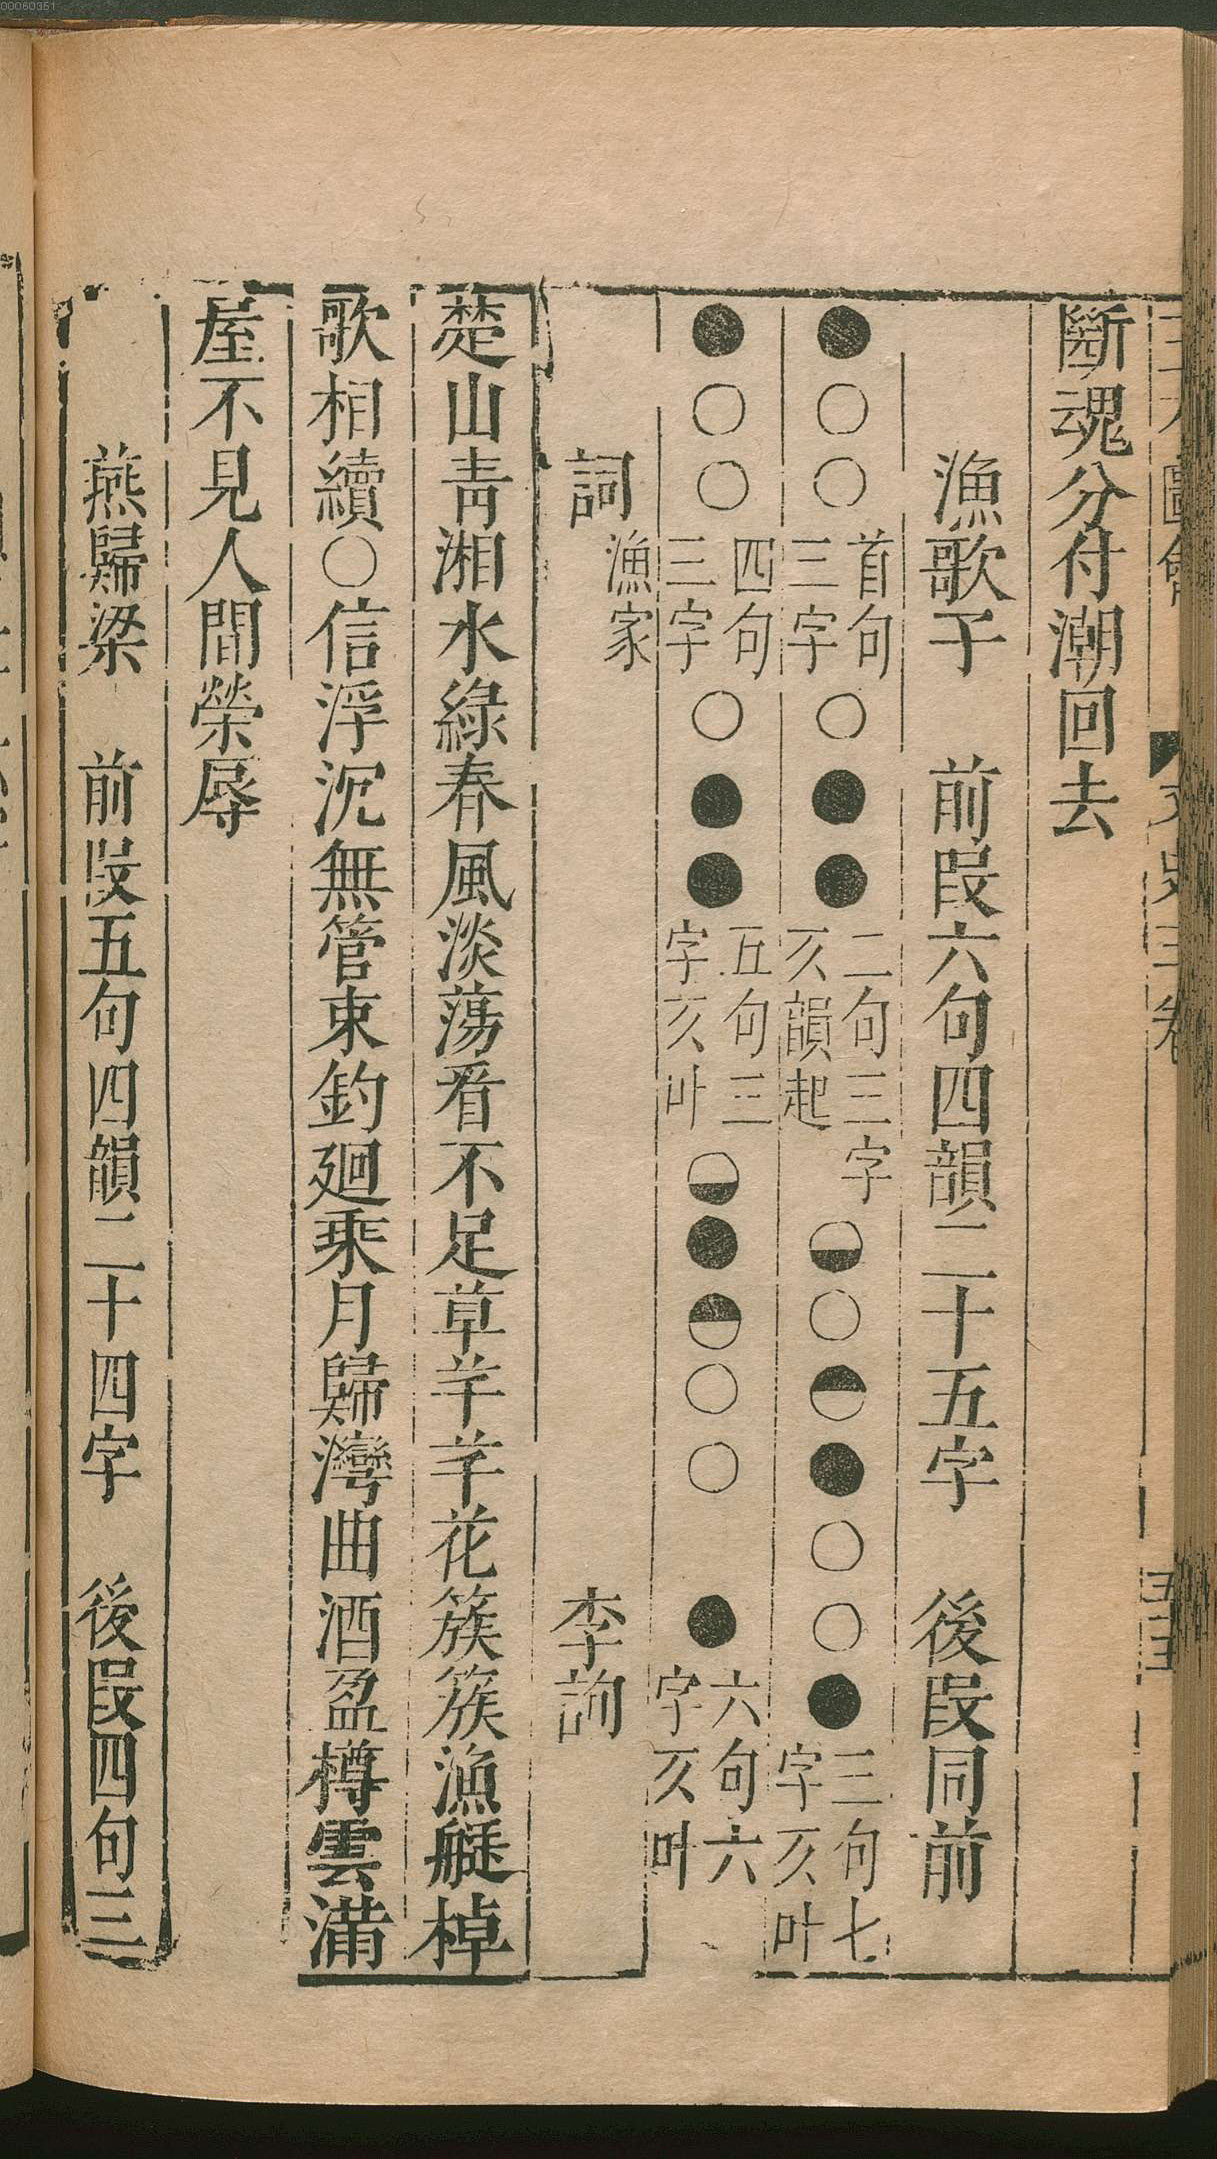 00060351
斷魂分付潮回去
漁歌子 前段六句四韻二十五字 後段同前
●○○首句三字○●●二句三字仄韻起◒○◓●○○●三句七字仄叶
●○○四句三字○●●五句三字仄叶◒●◓○○●六句六字仄叶
詞漁家 李詢
楚山青湘水綠春風淡蕩看不足草芊芊花簇簇漁艇棹
歌相續○信浮沉無管束釣廻乘月歸灣曲酒盈樽雲滿
屋不見人間榮辱
燕歸梁 前段五句四韻二十四字 後段四句三